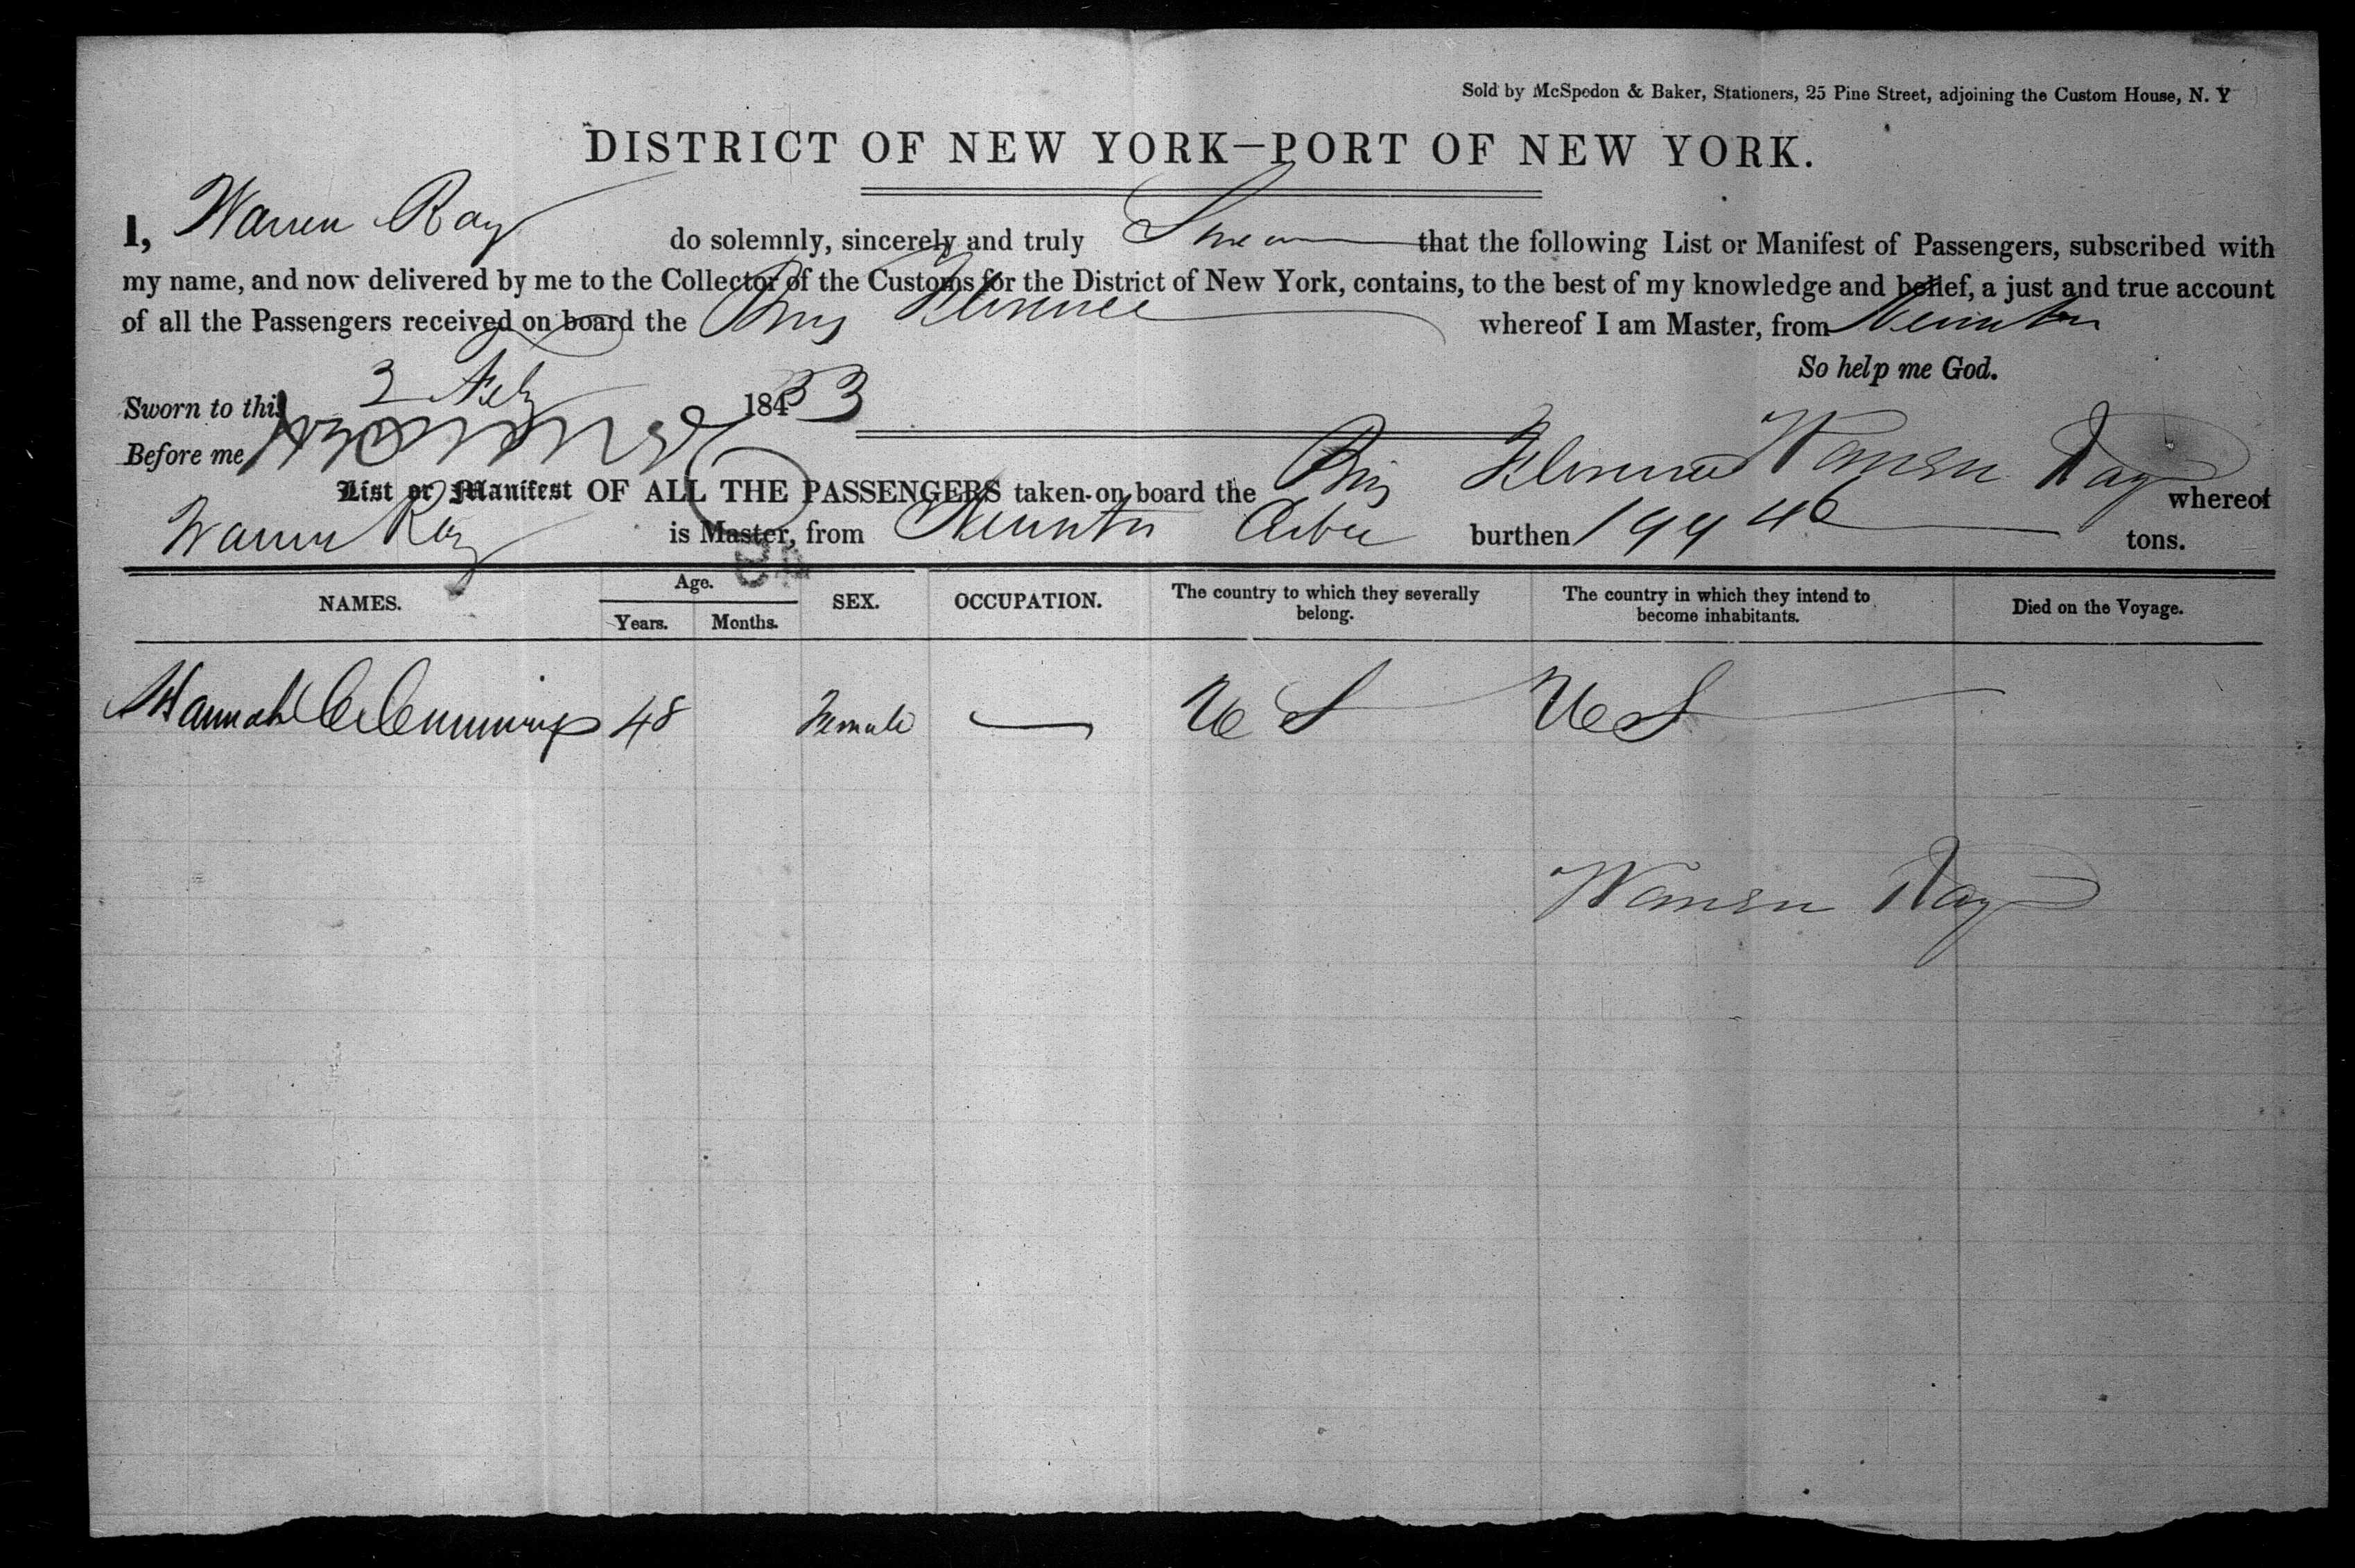 Sold by McSpedon & Baker, Stationers, 25 Pine Street, adjoining the Custom House, N. Y
DISTRICT OF NEW YORK—PORT OF NEW YORK.
I, Warren Ray do solemnly, sincerely and truly Swear that the following List or Manifest of Passengers, subscribed with
my name, and now delivered by me to the Collector of the Customs for the District of New York, contains, to the best of my knowledge and belief, a just and true account
of all the Passengers received on board the Brig Florence whereof I am Master, from Nuevitas
So help me God.
Sworn to this 3 Feby 1853
Before me
Warren Ray
List or Manifest OF ALL THE PASSENGERS taken on board the Brig Florence whereof
Warren Ray is Master, from Nuevitas Cuba burthen 199 46 tons.
NAMES. Age. SEX. OCCUPATION. The country to which they severally belong. The country in which they intend to become inhabitants. Died on the Voyage.
Years. Months.
Hannah C Cummings 48 Female — U S U S
Warren Ray